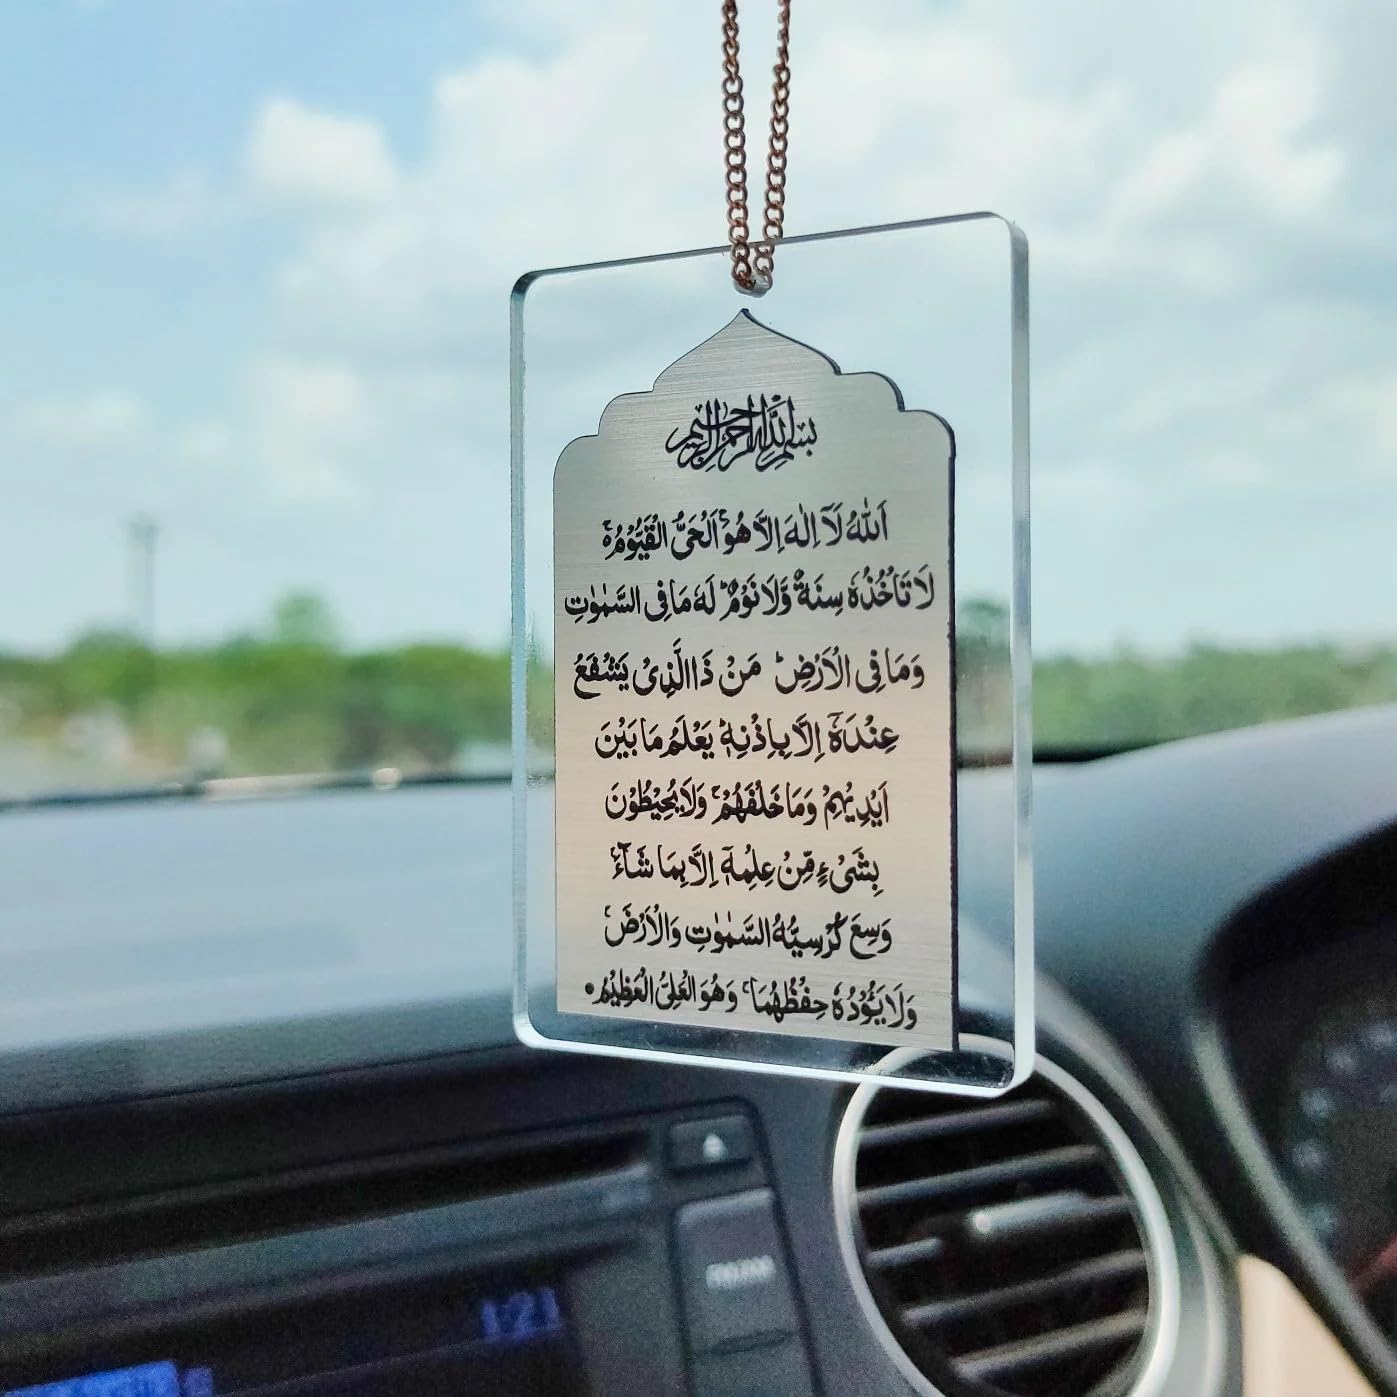 بسم الله الرحمن الرحيم
اَللّٰهُ لَآ اِلٰهَ اِلَّا هُوَۚ اَلْحَيُّ الْقَيُّوْمُ ۚ
لَا تَاْخُذُهٗ سِنَةٌ وَّلَا نَوْمٌ ؕ لَهٗ مَا فِی السَّمٰوٰتِ
وَمَا فِی الْاَرْضِ ؕ مَنْ ذَا الَّذِیْ يَشْفَعُ
عِنْدَهٗٓ اِلَّا بِاِذْنِهٖ ؕ يَعْلَمُ مَا بَيْنَ
اَيْدِيْهِمْ وَمَا خَلْفَهُمْ ۚ وَلَا يُحِيْطُوْنَ
بِشَیْءٍ مِّنْ عِلْمِهٖٓ اِلَّا بِمَا شَآءَ ۚ
وَسِعَ كُرْسِيُّهُ السَّمٰوٰتِ وَالْاَرْضَ ۚ
وَلَا يَـُٔوْدُهٗ حِفْظُهُمَا ۚ وَهُوَ الْعَلِیُّ الْعَظِيْمُ •
121